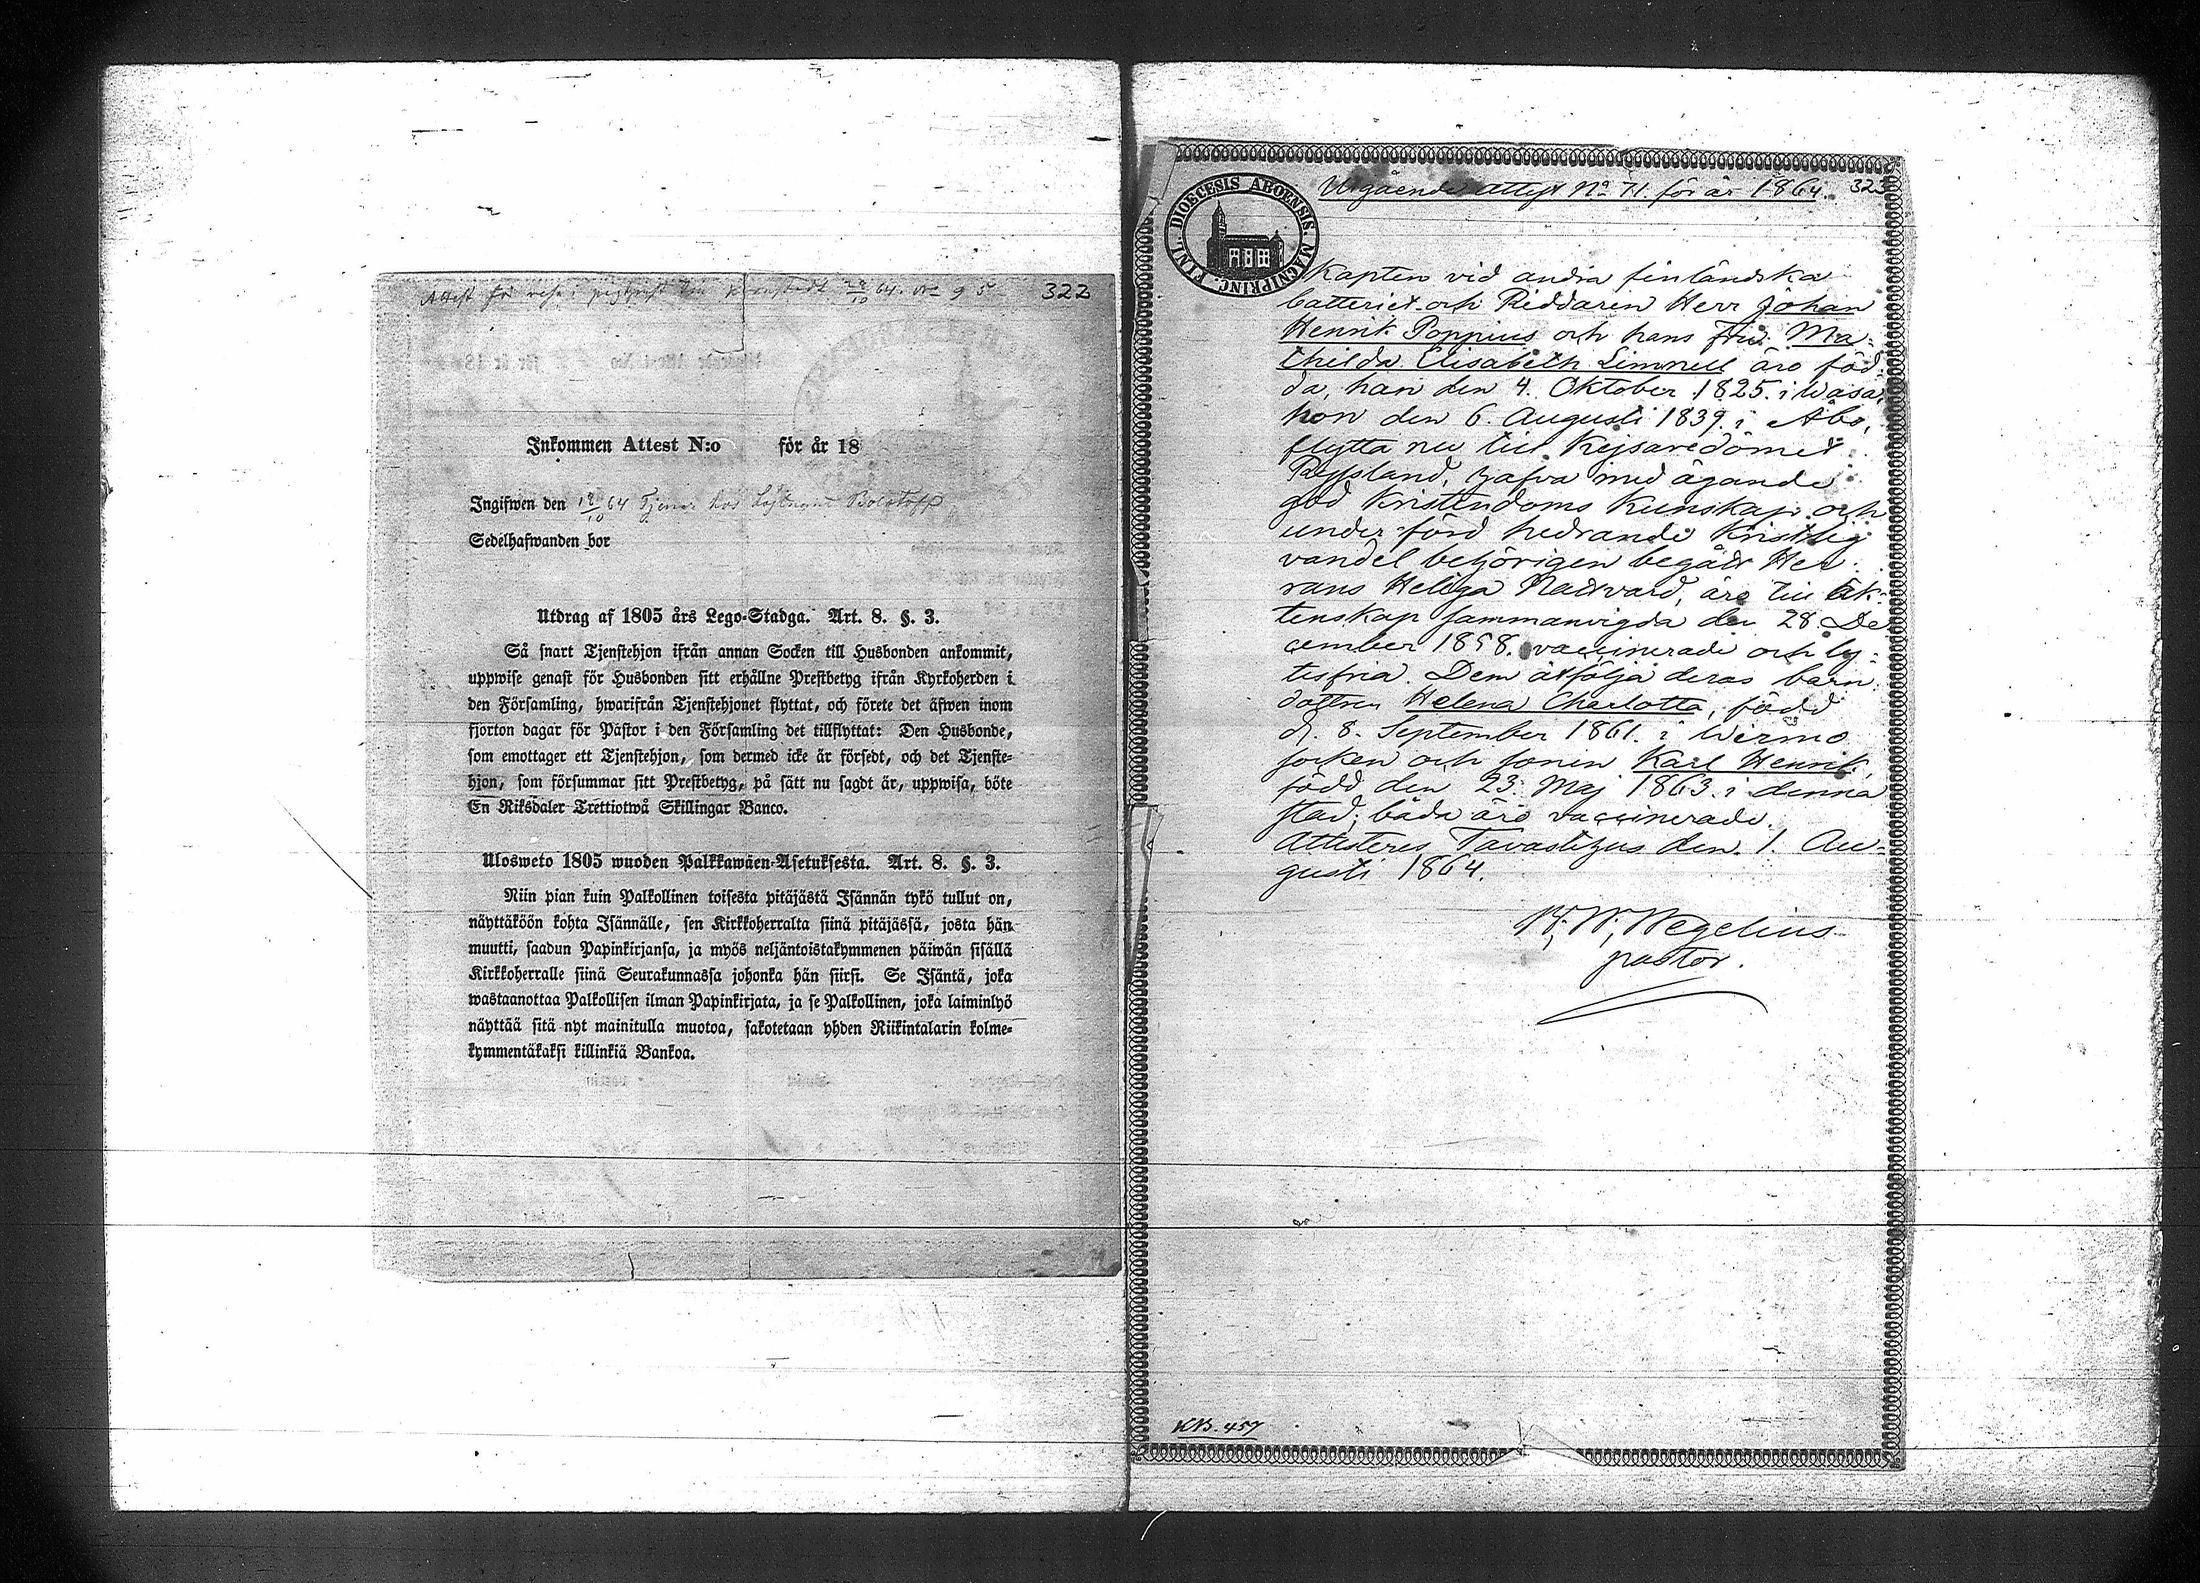 Attest för resa i pigtjenst till Kronstadt 28/10 64. No 95
322
Inkommen Attest N:o för år 18
Ingifwen den 18/10 64 Tjenar hos Löjtnant Bolotoff
Sedelhafwanden bor
Utdrag af 1805 års Lego-Stadga. Art. 8. §. 3.
Så snart Tjenstehjon ifrån annan Socken till Husbonden ankommit,
uppwise genast för Husbonden sitt erhållne Prestbetyg ifrån Kyrkoherden i
den Församling, hwarifrån Tjenstehjonet flyttat, och förete det äfwen inom
fjorton dagar för Pastor i den Församling det tillflyttat: Den Husbonde,
som emottager ett Tjenstehjon, som dermed icke är försedt, och det Tjenste-
hjon, som försummar sitt Prestbetyg, på sätt nu sagdt är, uppwisa, böte
En Riksdaler Trettiotwå Skillingar Banco.
Ulosweto 1805 wuoden Palkkawäen-Asetuksesta. Art. 8. §. 3.
Niin pian kuin Palkollinen toisesta pitäjästä Isännän tykö tullut on,
näyttäköön kohta Isännälle, sen Kirkkoherralta siinä pitäjässä, josta hän
muutti, saadun Papinkirjansa, ja myös neljäntoistakymmenen päiwän sisällä
Kirkkoherralle siinä Seurakunnassa johonka hän siirsi. Se Isäntä, joka
wastaanottaa Palkollisen ilman Papinkirjata, ja se Palkollinen, joka laiminlyö
näyttää sitä nyt mainitulla muotoa, sakotetaan yhden Riikintalarin kolme-
kymmentäkaksi killinkiä Bankoa.
FINL. DIOECESIS ABOENSIS. MAGNIPRINC.
Utgående attest No 71. för år 1864.
323
Kapten vid andra finländska
batteriet och Riddaren Herr Johan
Henrik Poppius och hans Fru Ma-
thilda Elisabeth Limnell äro föd-
da, han den 4. Oktober 1825. i Wasa,
hon den 6. Augusti 1839. i Åbo,
flytta nu till Kejsaredömet
Ryssland, hafva med ägande
god Kristendoms Kunskap och
under förd hedrande Kristlig
vandel behörigen begått Her-
rans Heliga Nattvard, äro till äk-
tenskap sammanvigda den 28 De-
cember 1858. vaccinerade och ly-
tesfria. Dem åtfölja deras barn
dottren Helena Charlotta, född
d. 8. September 1861. i Wirmo
socken och sonen Karl Henrik,
född den 23. Maj 1863. i denna
stad; båda äro vaccinerade.
Attesteras Tavastehus den 1. Au-
gusti 1864.
W. W. Wegelius
pastor.
KB. 457